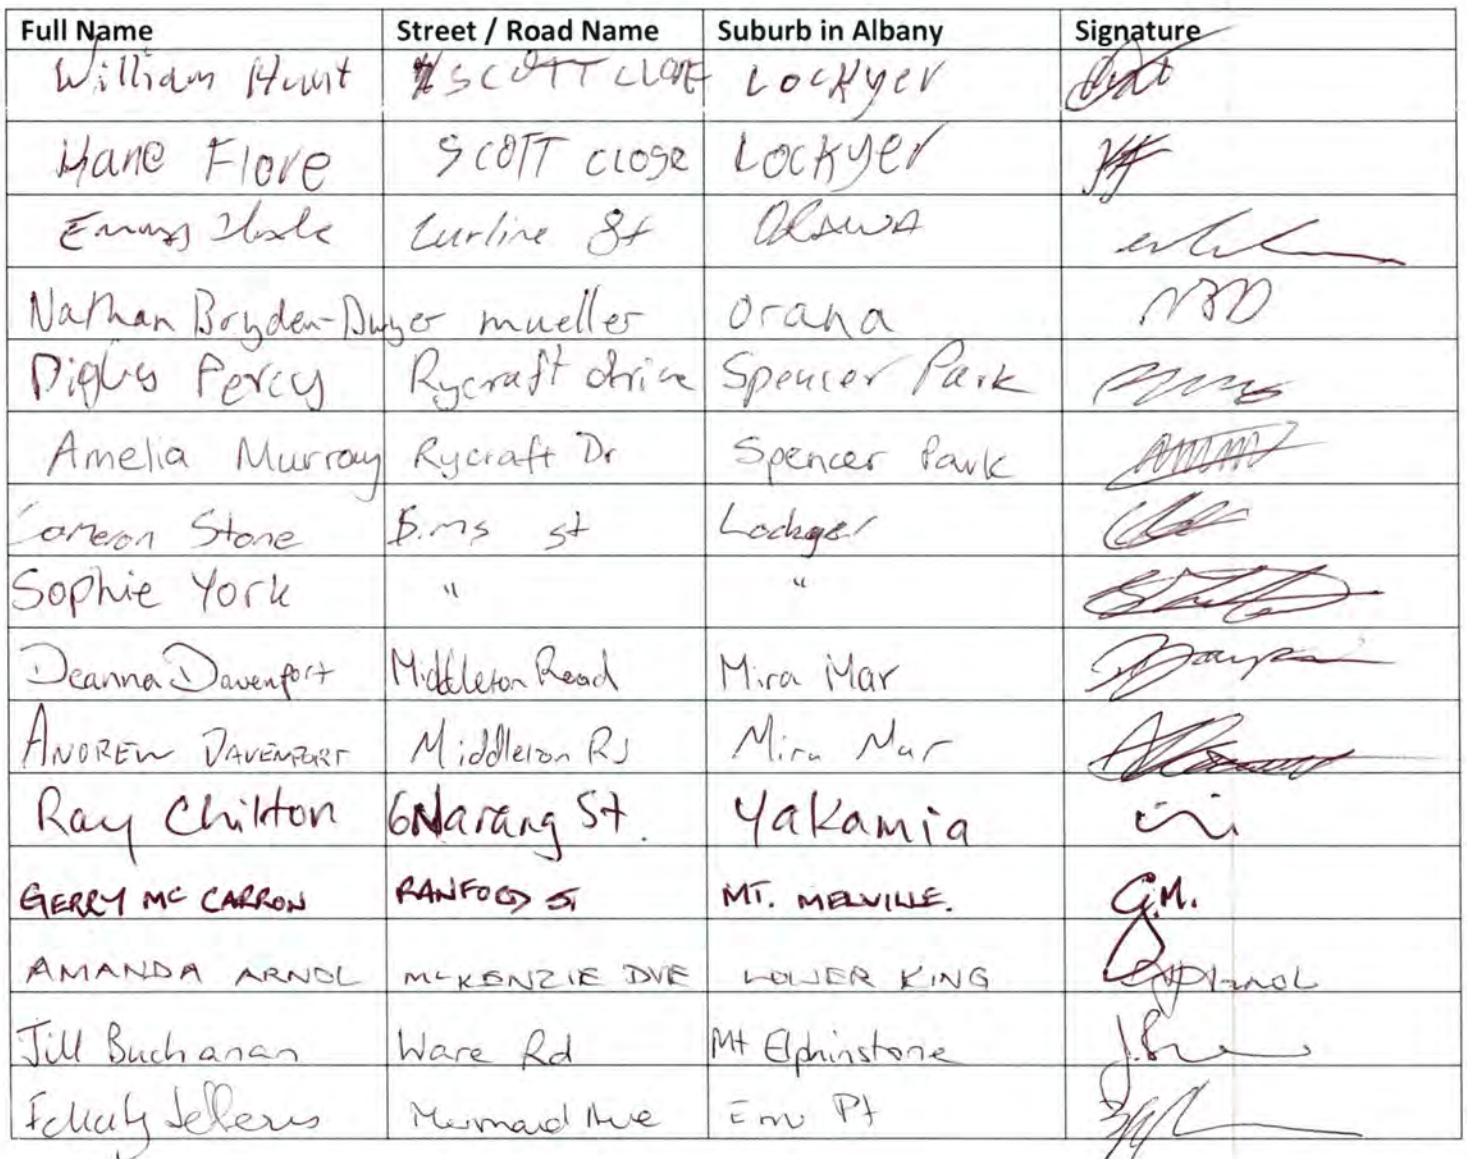 Full Name Street / Road Name Suburb in Albany Signature
William Hunt SCOTT CLOSE Lockyer
Flore SCOTT close Lockyer
Lurline St ORANA
Nathan Bryden-Dwyer mueller orana NBD
Percy Rycraft drive Spencer Park
Amelia Murray Rycraft Dr Spencer Park
Cameron Stone st Lockyer
Sophie York " "
Deanna Davenport Middleton Road Mira Mar
ANDREW DAVENPORT Middleton Rd Mira Mar
Ray Chilton 6 Narang St. Yakamia
GERRY MC CARRON RANFORD ST MT. MELVILLE. G.M.
AMANDA ARNOL McKENZIE DVE LOWER KING
Jill Buchanan Ware Rd Mt Elphinstone
Mermaid Ave Emu Pt